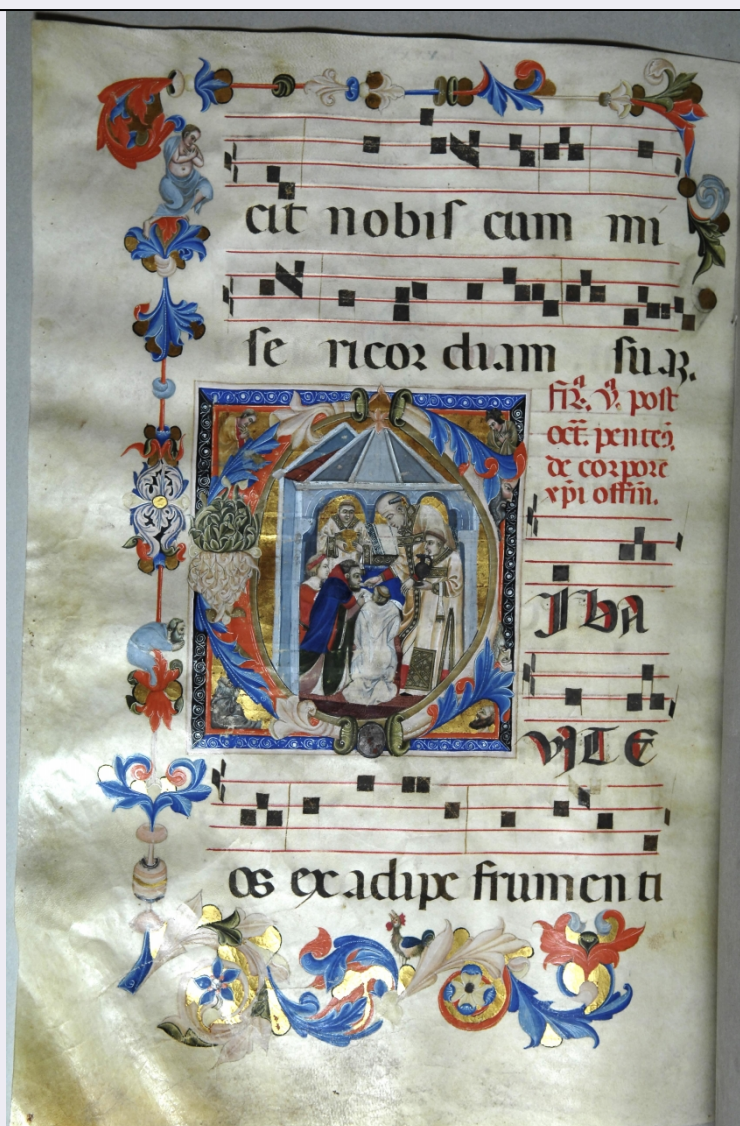 cit nobis cum mi
se ricor diam suaz.
fr̃. v̾. post
oct̃. pentẽ.
de corpore
xp̃i offm̃.
IBA
VITE
os ex adipe frumen ti